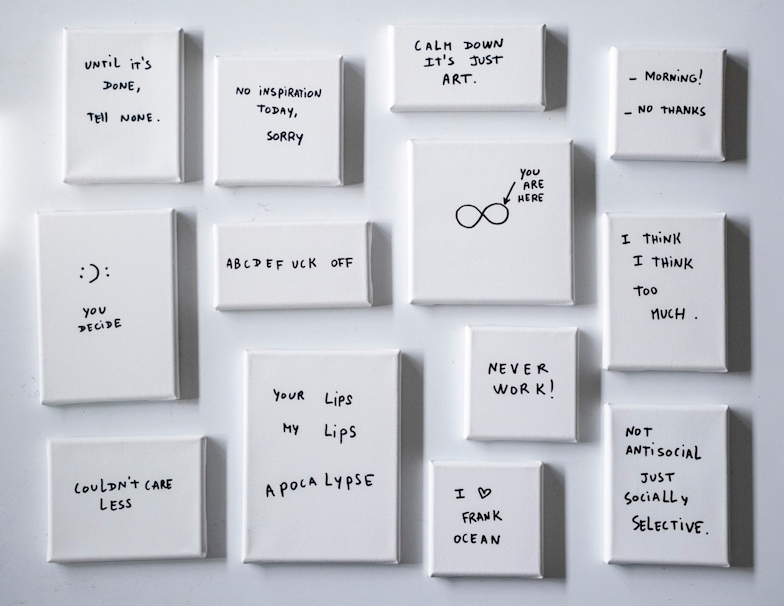 UNTIL IT'S
DONE,
TELL NONE.
NO INSPIRATION
TODAY,
SORRY
CALM DOWN
IT'S JUST
ART.
- MORNING!
- NO THANKS
:):
YOU
DECIDE
ABCDEF UCK OFF
YOU
ARE
HERE
I THINK
I THINK
TOO
MUCH.
COULDN'T CARE
LESS
YOUR LIPS
MY LIPS
APOCALYPSE
NEVER
WORK!
I ♡
FRANK
OCEAN
NOT
ANTISOCIAL
JUST
SOCIALLY
SELECTIVE.